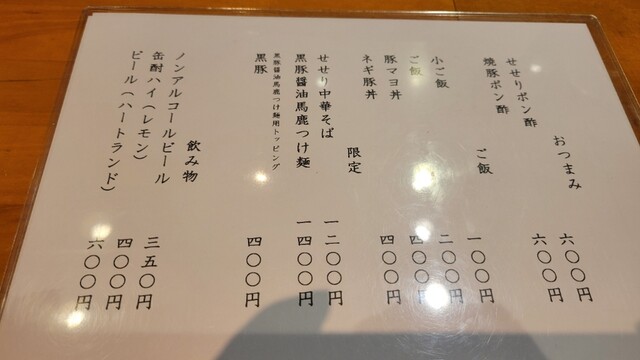 おつまみ
せせりポン酢 六〇〇円
焼豚ポン酢 六〇〇円
ご飯
小ご飯 一〇〇円
ご飯 二〇〇円
豚マヨ丼 四〇〇円
ネギ豚丼 四〇〇円
限定
せせり中華そば 一二〇〇円
黒豚醤油馬鹿つけ麺 一四〇〇円
黒豚醤油馬鹿つけ麺用トッピング
黒豚 四〇〇円
飲み物
ノンアルコールビール 三五〇円
缶酎ハイ(レモン) 四〇〇円
ビール(ハートランド) 六〇〇円